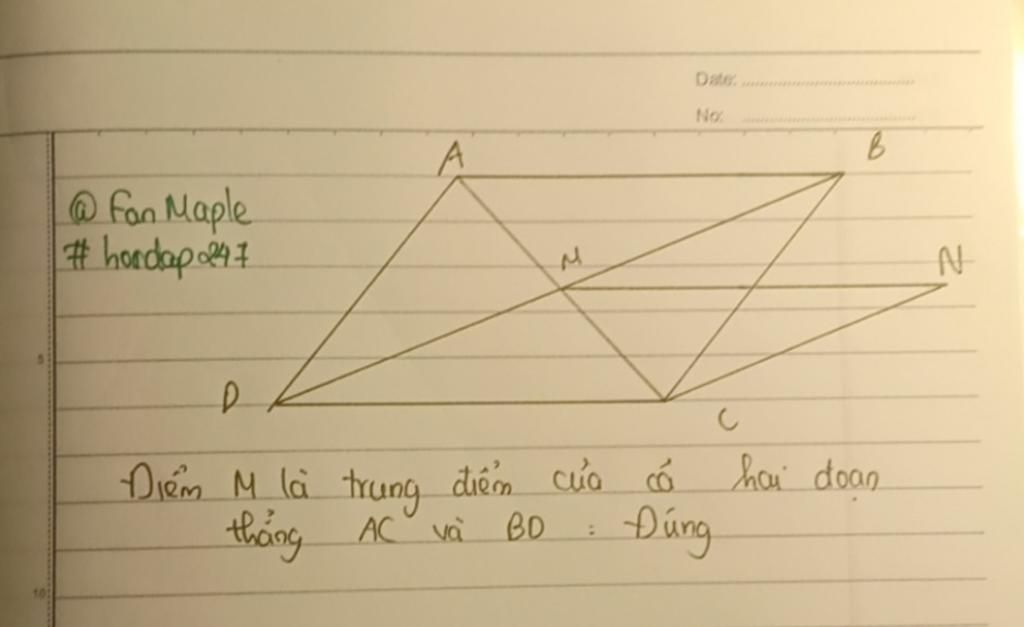 Date: ..............................
No: ..............................
A
B
@ Fan Maple
# hoidap247
M
N
5
D
C
Điểm M là trung điểm của cả hai đoạn
thẳng AC và BD : Đúng
10